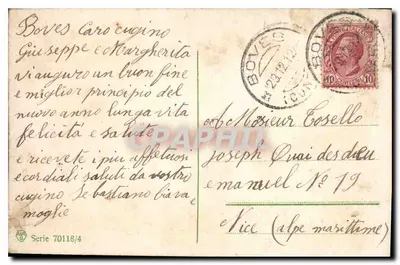 Boves Caro cugino
Giuseppe e Margherita
vi auguro un buon fine
e miglior principio del
nuovo anno lunga vita
felicita e salute
e ricevete i piu affetuosi
e cordiali saluti da vostro
cugino Sebastiano
moglie
Serie 70118/4
BOVES
23.12.12
(CUN
BOVES
10 10
A Monsieur Tosello
Joseph Quai des deu
emanuel No 19
Nice (alpe marittime)
CPArama